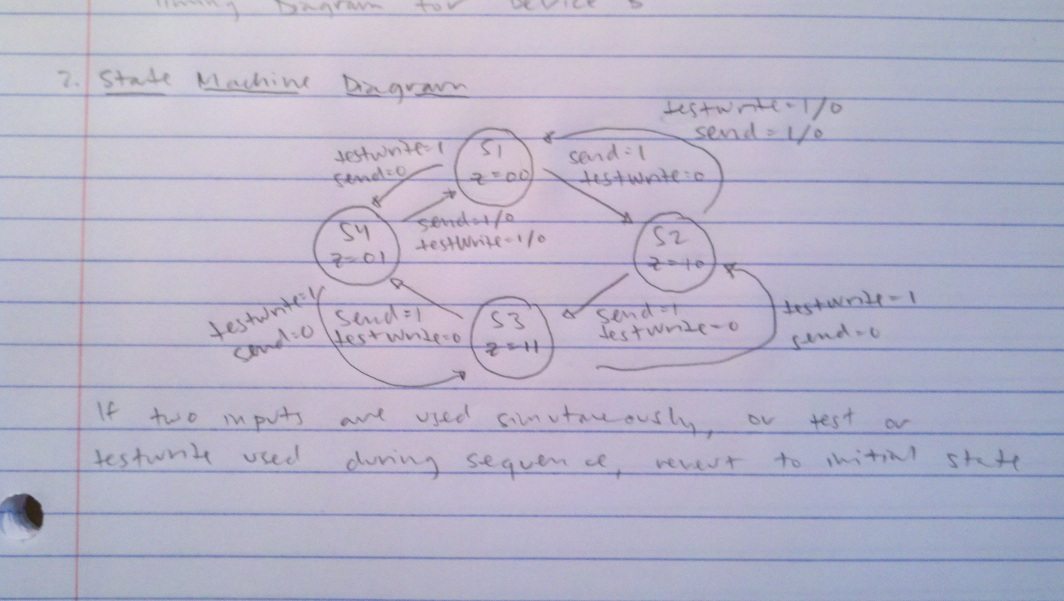 Timing Diagram for Device 3
2. State Machine Diagram
testwrite=1/0
send=1/0
S1
z=00
testwrite=1
send=0
send=1
testwrite=0
send=1/0
testwrite=1/0
S4
z=01
S2
z=10
testwrite=1
send=0
send=1
testwrite=0
S3
z=11
send=1
testwrite=0
testwrite=1
send=0
If two inputs are used simutaneously, or test or
testwrite used during sequence, revert to initial state